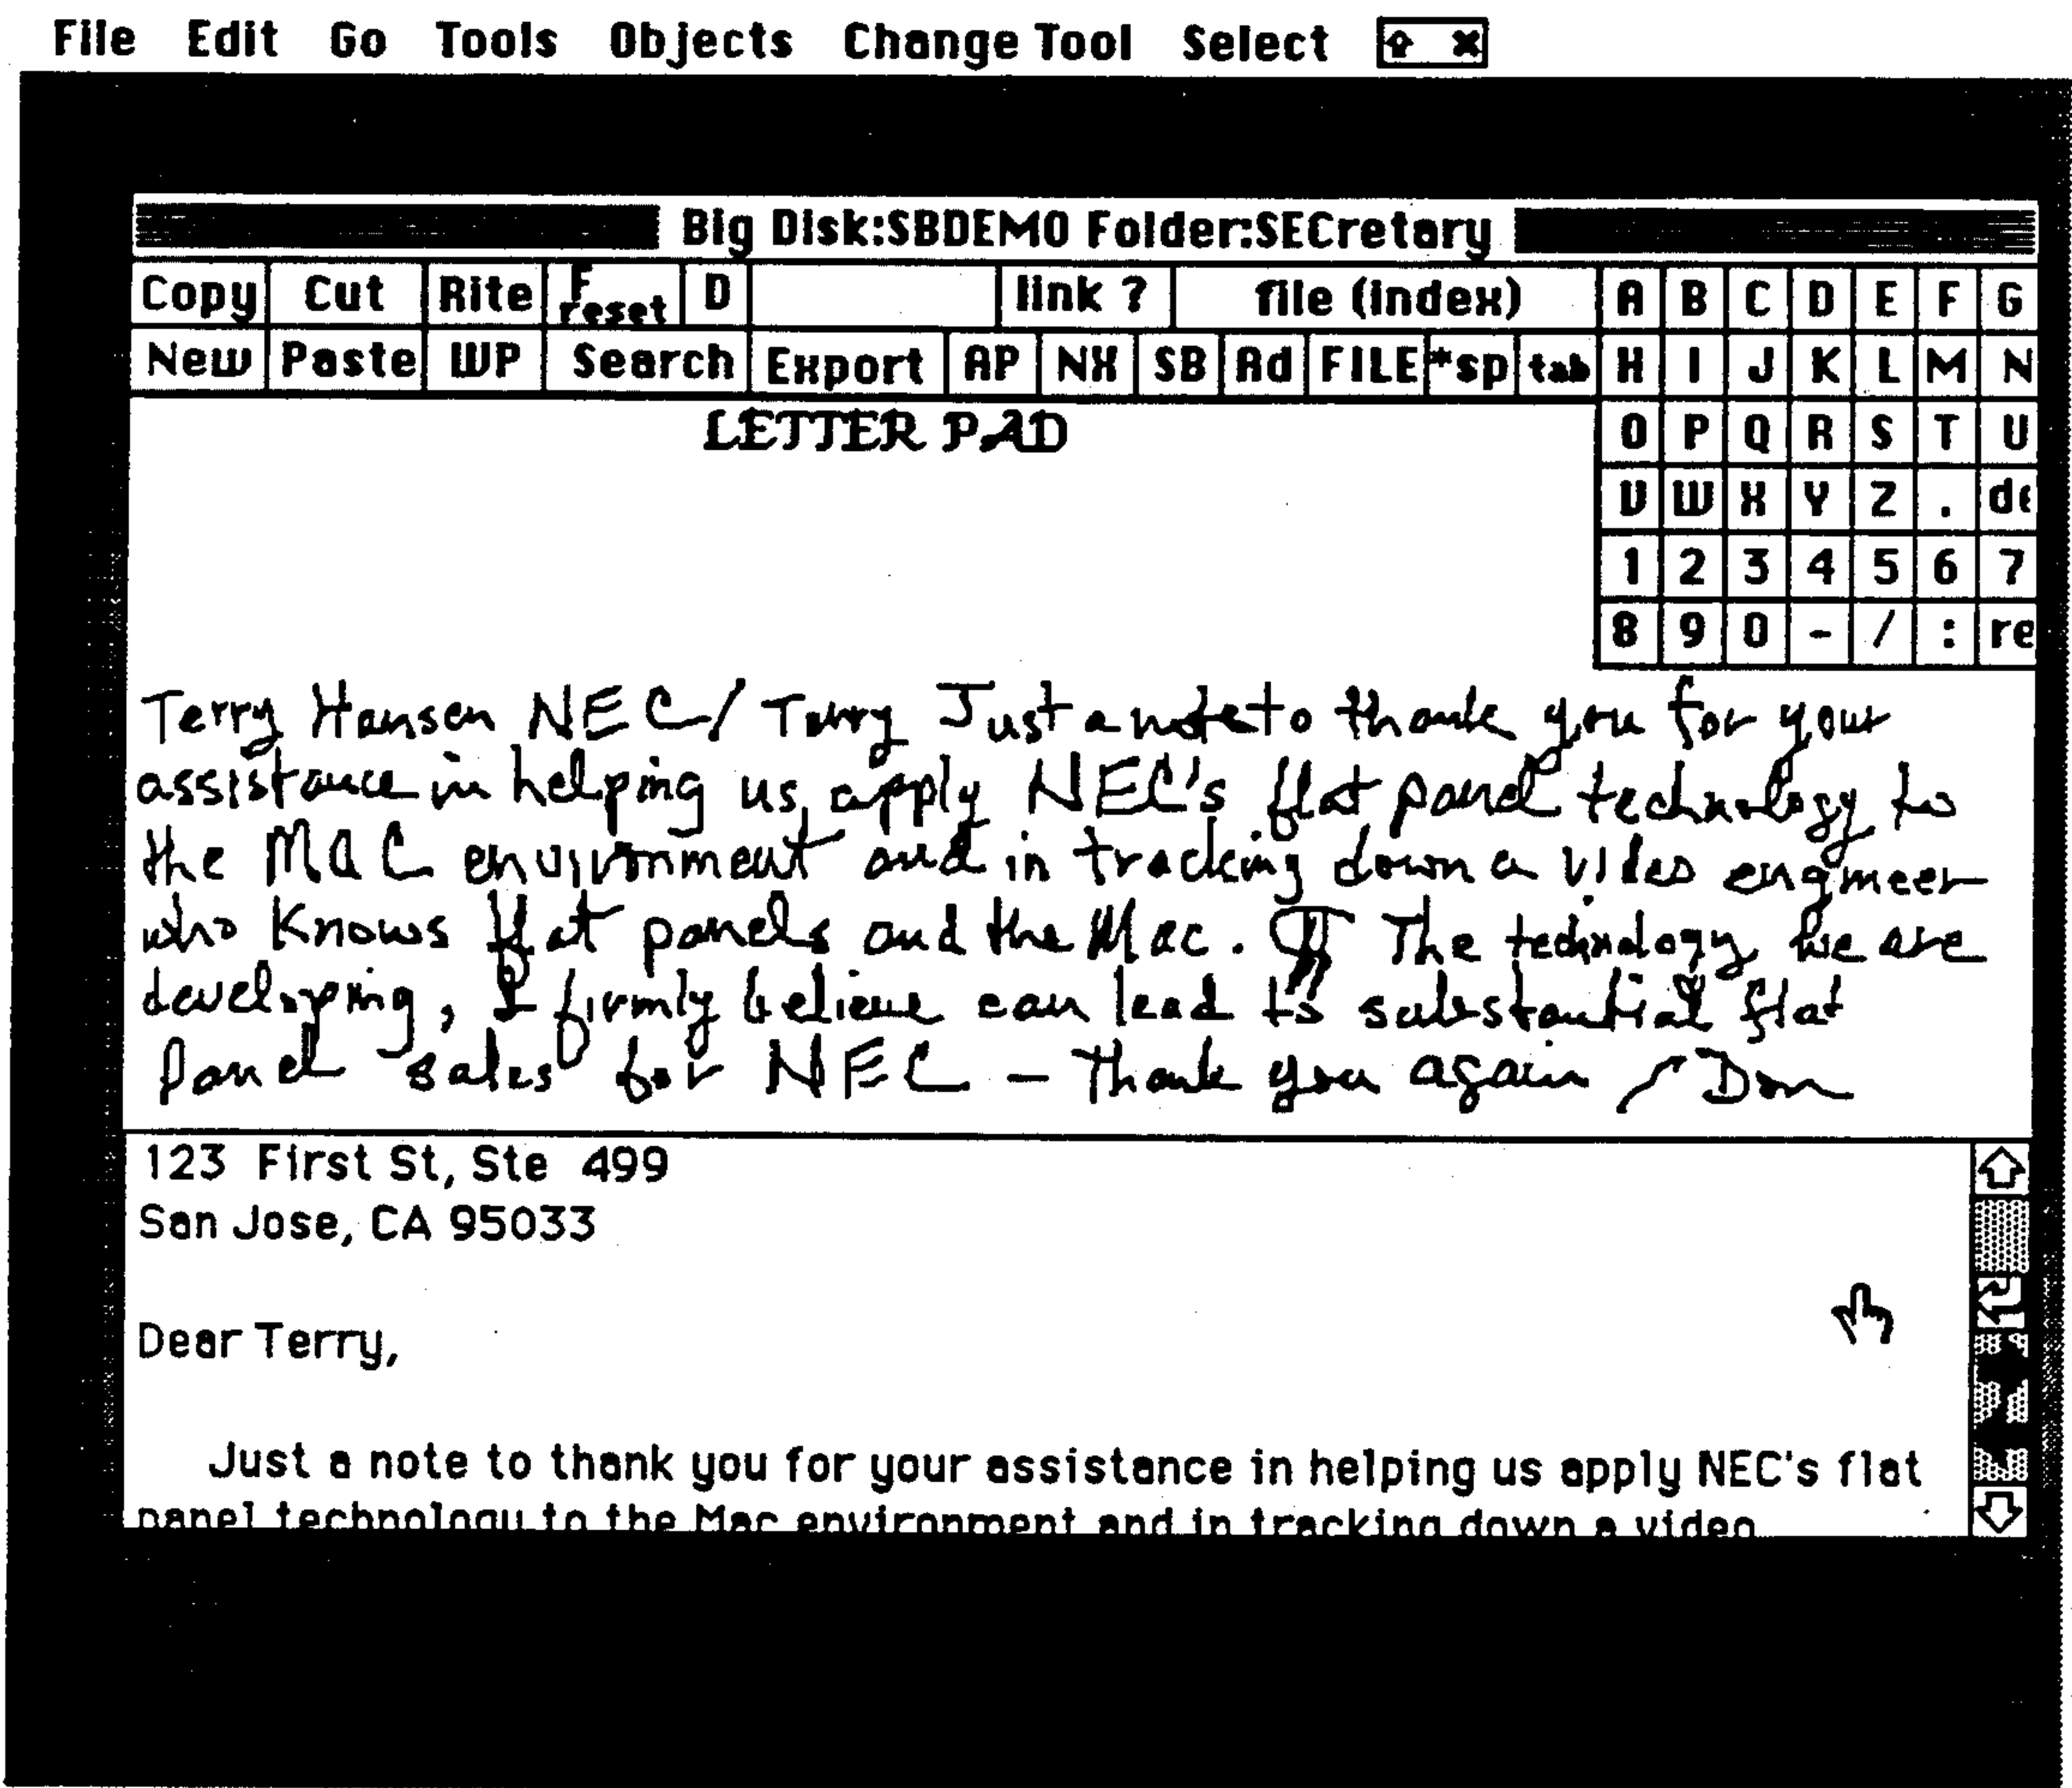 File Edit Go Tools Objects Change Tool Select
Big Disk:SBDEMO Folder:SECretary
Copy Cut Rite F reset D link ? file (index) A B C D E F G
New Paste WP Search Export AP NX SB Ad FILE *sp tab H I J K L M N
LETTER PAD
O P Q R S T U
V W X Y Z . de
1 2 3 4 5 6 7
8 9 0 - / : re
Terry Hansen NEC/ Terry Just a note to thank you for your
assistance in helping us apply NEC's flat panel technology to
the MAC environment and in tracking down a video engineer
who Knows flat panels and the Mac. ¶ The technology we are
developing, I firmly believe can lead to substantial flat
Panel sales for NEC - Thank you again / Don
123 First St, Ste 499
San Jose, CA 95033
Dear Terry,
Just a note to thank you for your assistance in helping us apply NEC's flat
panel technology to the Mac environment and in tracking down a video